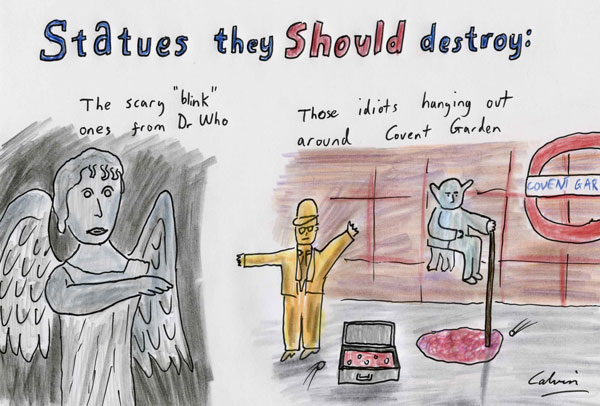 Statues they Should destroy:
The scary "blink"
ones from Dr Who
Those idiots hanging out
around Covent Garden
COVENT GAR
Calvin